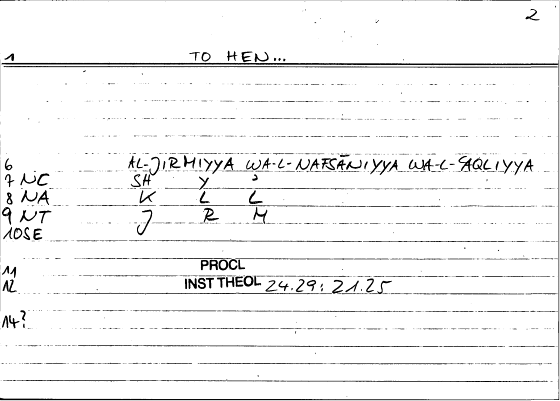 2
1 TO HEN...
6 AL-JIRMIYYA WA-L-NAFSĀNIYYA WA-L-ʿAQLIYYA
7 NC SH Y ʾ
8 NA K L L
9 NT J R M
10SE
11 PROCL
12 INST THEOL 24.29; 21.25
14?